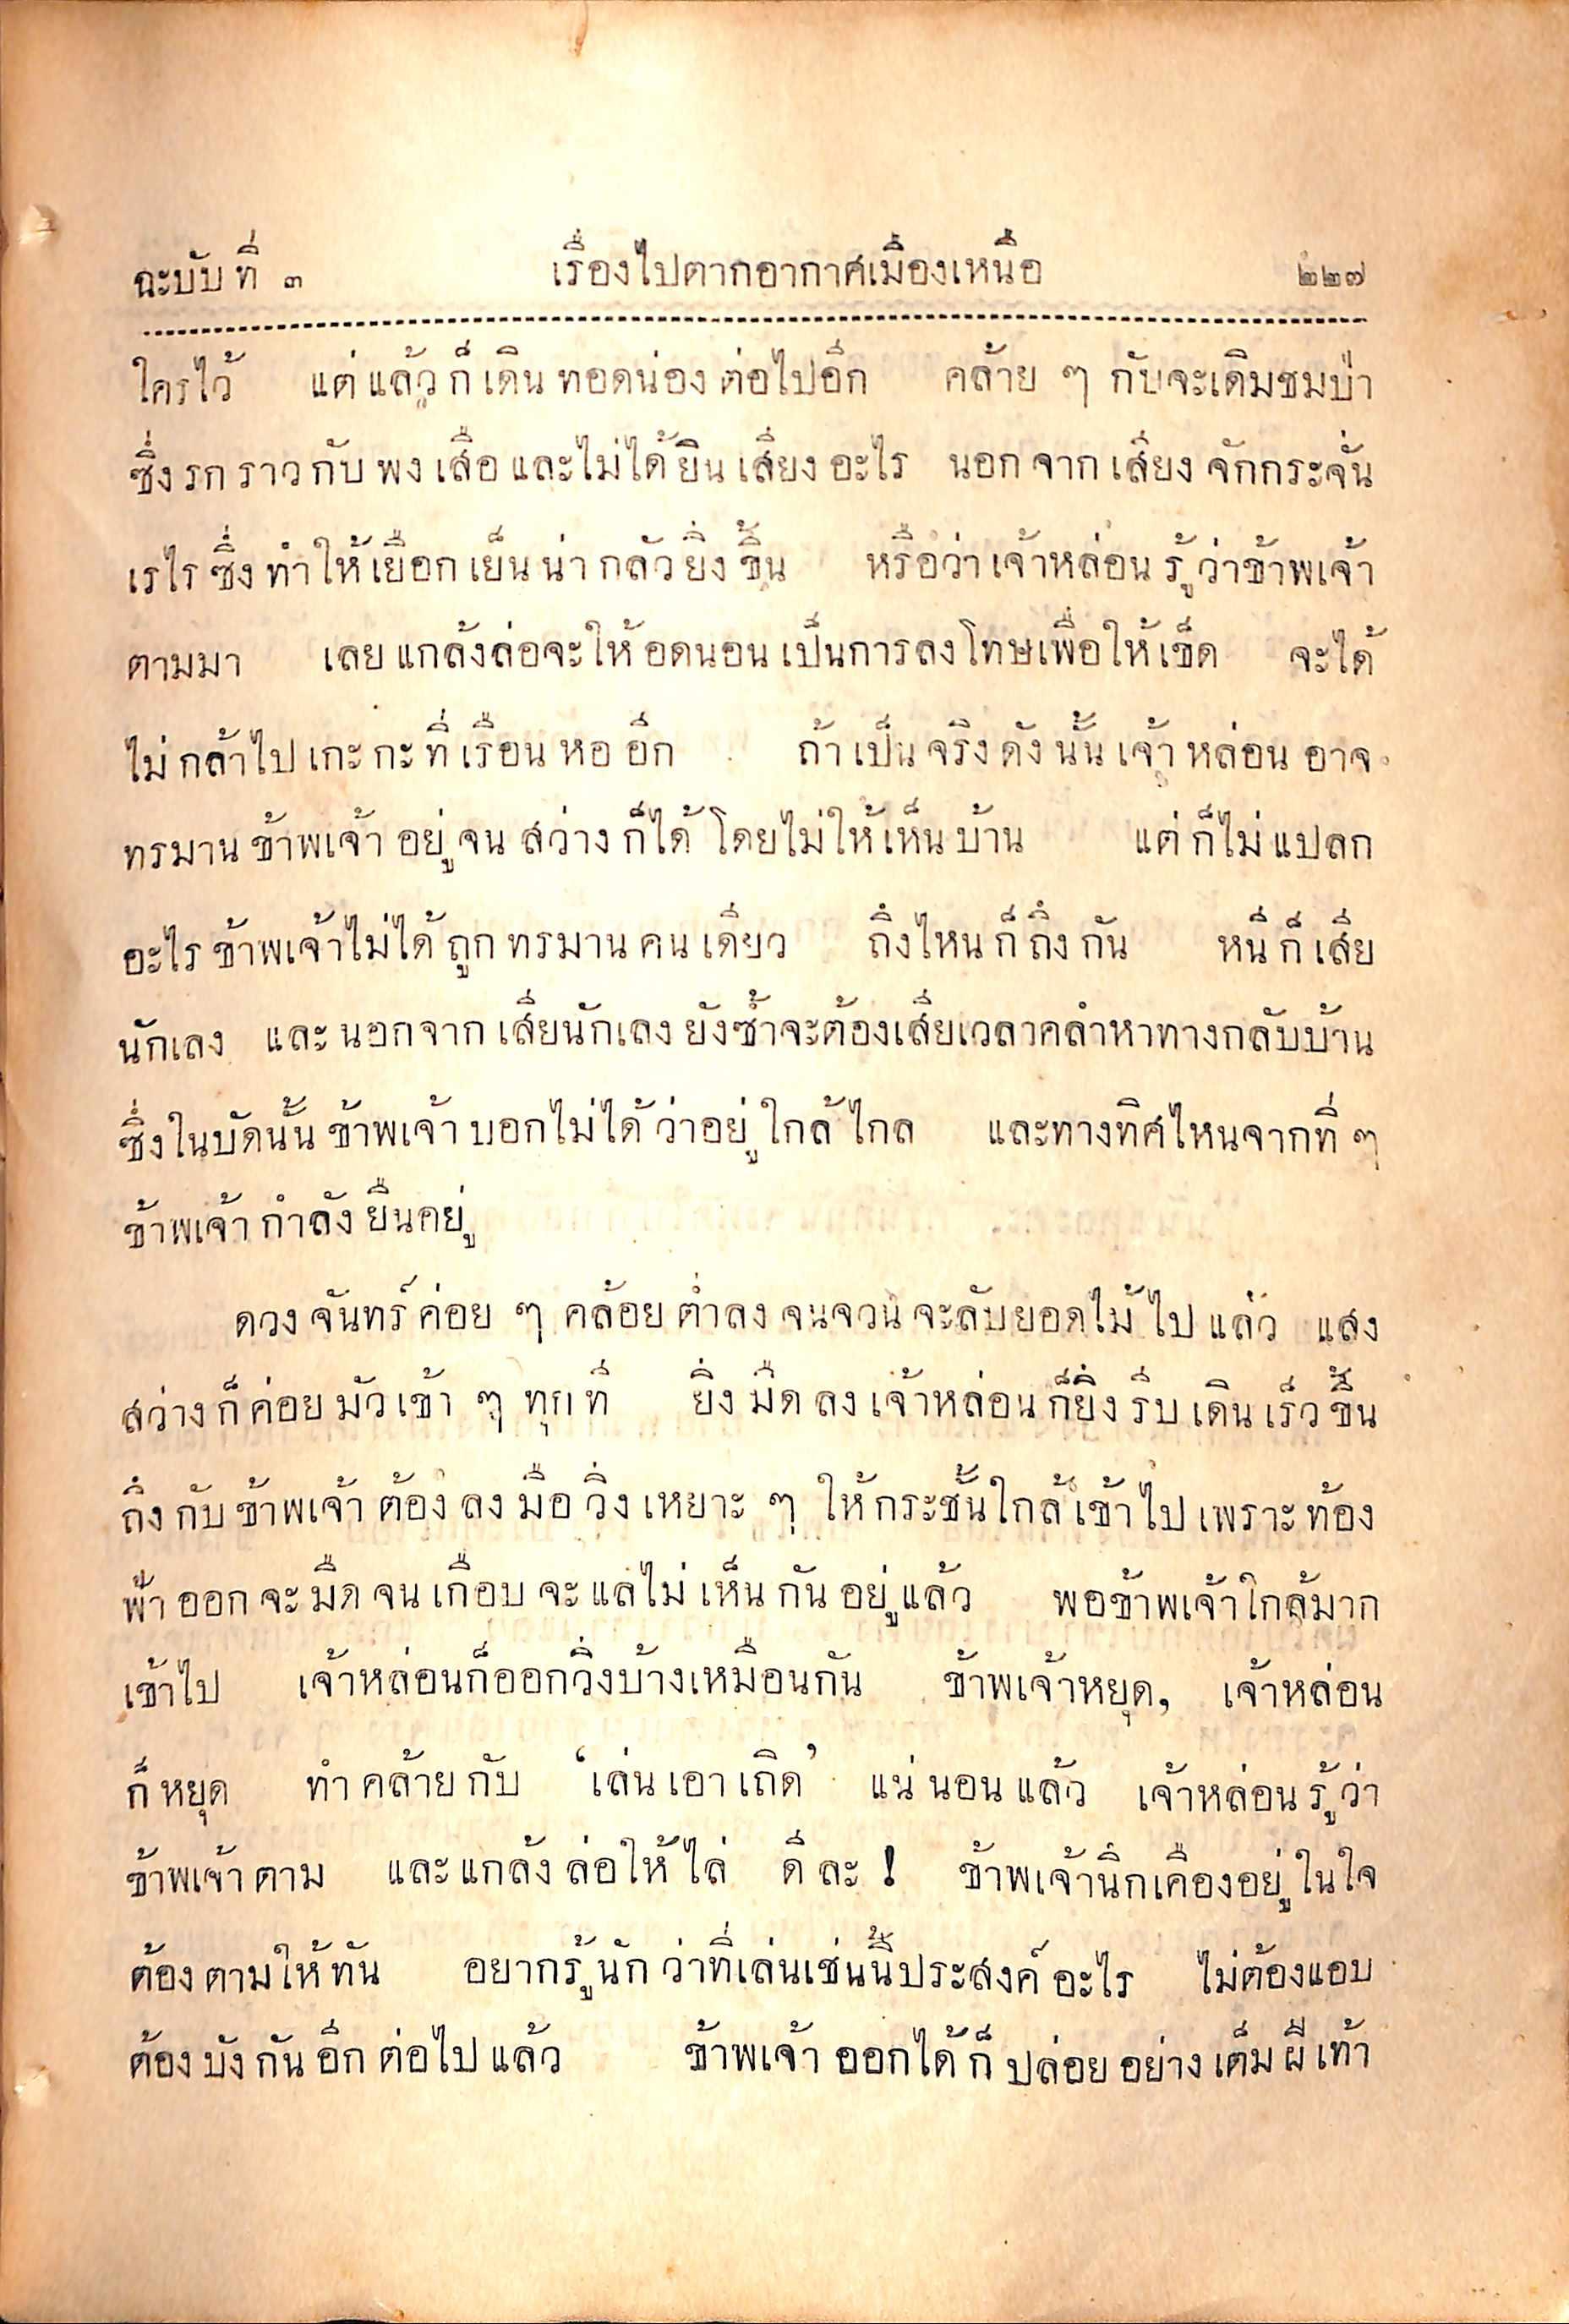 ฉะบับที่ ๓ เรื่องไปตากอากาศเมืองเหนือ ๒๒๗
ใครไว้ แต่แล้วก็เดินทอดน่องต่อไปอีก คล้าย ๆ กับจะเดิมชมป่า
ซึ่งรกราวกับพงเสือและไม่ได้ยินเสียงอะไร นอกจากเสียงจักกระจั่น
เรไรซึ่งทำให้เยือกเย็นน่ากลัวยิ่งขึ้น หรือว่าเจ้าหล่อนรู้ว่าข้าพเจ้า
ตามมา เลยแกล้งล่อจะให้อดนอนเป็นการลงโทษเพื่อให้เข็ด จะได้
ไม่กล้าไปเกะกะที่เรือนหออีก ถ้าเป็นจริงดังนั้นเจ้าหล่อนอาจ
ทรมานข้าพเจ้าอยู่จนสว่างก็ได้ โดยไม่ให้เห็นบ้าน แต่ก็ไม่แปลก
อะไรข้าพเจ้าไม่ได้ถูกทรมานคนเดียว ถึงไหนก็ถึงกัน หนีก็เสีย
นักเลง และนอกจากเสียนักเลงยังซ้ำจะต้องเสียเวลาคลำหาทางกลับบ้าน
ซึ่งในบัดนั้นข้าพเจ้าบอกไม่ได้ว่าอยู่ใกล้ไกล และทางทิศไหนจากที่ ๆ
ข้าพเจ้ากำลังยืนคอยู่
ดวงจันทร์ค่อย ๆ คล้อยต่ำลงจนจวนจะลับยอดไม้ไปแล้ว แสง
สว่างก็ค่อยมัวเข้า ๆ ทุกที ยิ่งมืดลงเจ้าหล่อนก็ยิ่งรีบเดินเร็วขึ้น
ถึงกับข้าพเจ้าต้องลงมือวิ่งเหยาะ ๆ ให้กระชั้นใกล้เข้าไปเพราะท้อง
ฟ้าออกจะมืดจนเกือบจะแลไม่เห็นกันอยู่แล้ว พอข้าพเจ้าใกล้มาก
เข้าไป เจ้าหล่อนก็ออกวิ่งบ้างเหมือนกัน ข้าพเจ้าหยุด, เจ้าหล่อน
ก็หยุด ทำคล้ายกับ ‘เล่นเอาเถิด’ แน่นอนแล้ว เจ้าหล่อนรู้ว่า
ข้าพเจ้าตาม และแกล้งล่อให้ไล่ ดีละ! ข้าพเจ้านึกเคืองอยู่ในใจ
ต้องตามให้ทัน อยากรู้นักว่าที่เล่นเช่นนี้ประสงค์อะไร ไม่ต้องแอบ
ต้องบังกันอีกต่อไปแล้ว ข้าพเจ้าออกได้ก็ปล่อยอย่างเต็มฝีเท้า